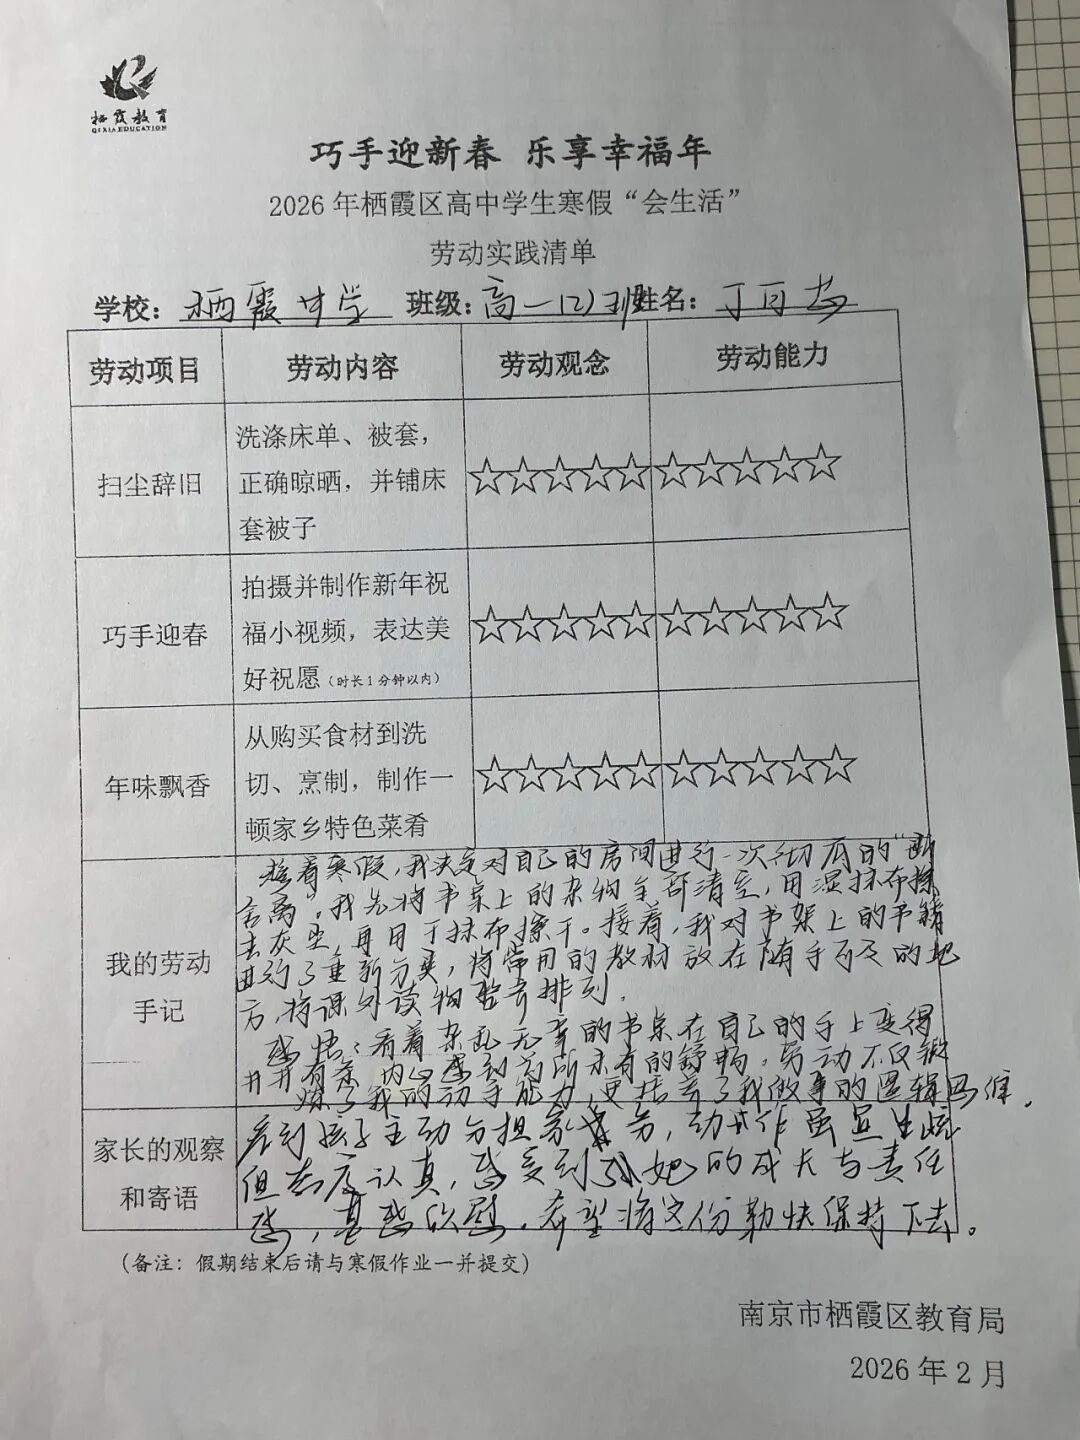 栖霞教育
QIXIA EDUCATION
巧手迎新春 乐享幸福年
2026年栖霞区高中学生寒假“会生活”
劳动实践清单
学校：栖霞中学 班级：高一(2)班 姓名：丁
劳动项目 劳动内容 劳动观念 劳动能力
扫尘辞旧
洗涤床单、被套，
正确晾晒，并铺床
套被子
☆☆☆☆☆ ☆☆☆☆☆
巧手迎春
拍摄并制作新年祝
福小视频，表达美
好祝愿（时长1分钟以内）
☆☆☆☆☆ ☆☆☆☆☆
年味飘香
从购买食材到洗
切、烹制，制作一
顿家乡特色菜肴
☆☆☆☆☆ ☆☆☆☆☆
我的劳动
手记
趁着寒假，我决定对自己的房间进行一次彻底的“断
舍离”。我先将书桌上的杂物全部清空，用湿抹布擦
去灰尘，再用干抹布擦干。接着，我对书架上的书籍
进行了重新分类，将常用的教材放在随手可及的地
方，将课外读物整齐排列。
感悟：看着杂乱无章的书桌在自己的手上变得
井井有条，内心感到前所未有的舒畅，劳动不仅锻
炼了我的动手能力，更培养了我做事的逻辑
家长的观察
和寄语
看到孩子主动分担家务，动作虽显生疏
但态度认真，感受到她的成长与责任
感，甚感欣慰。希望将这份勤快保持下去。
（备注：假期结束后请与寒假作业一并提交）
南京市栖霞区教育局
2026年2月